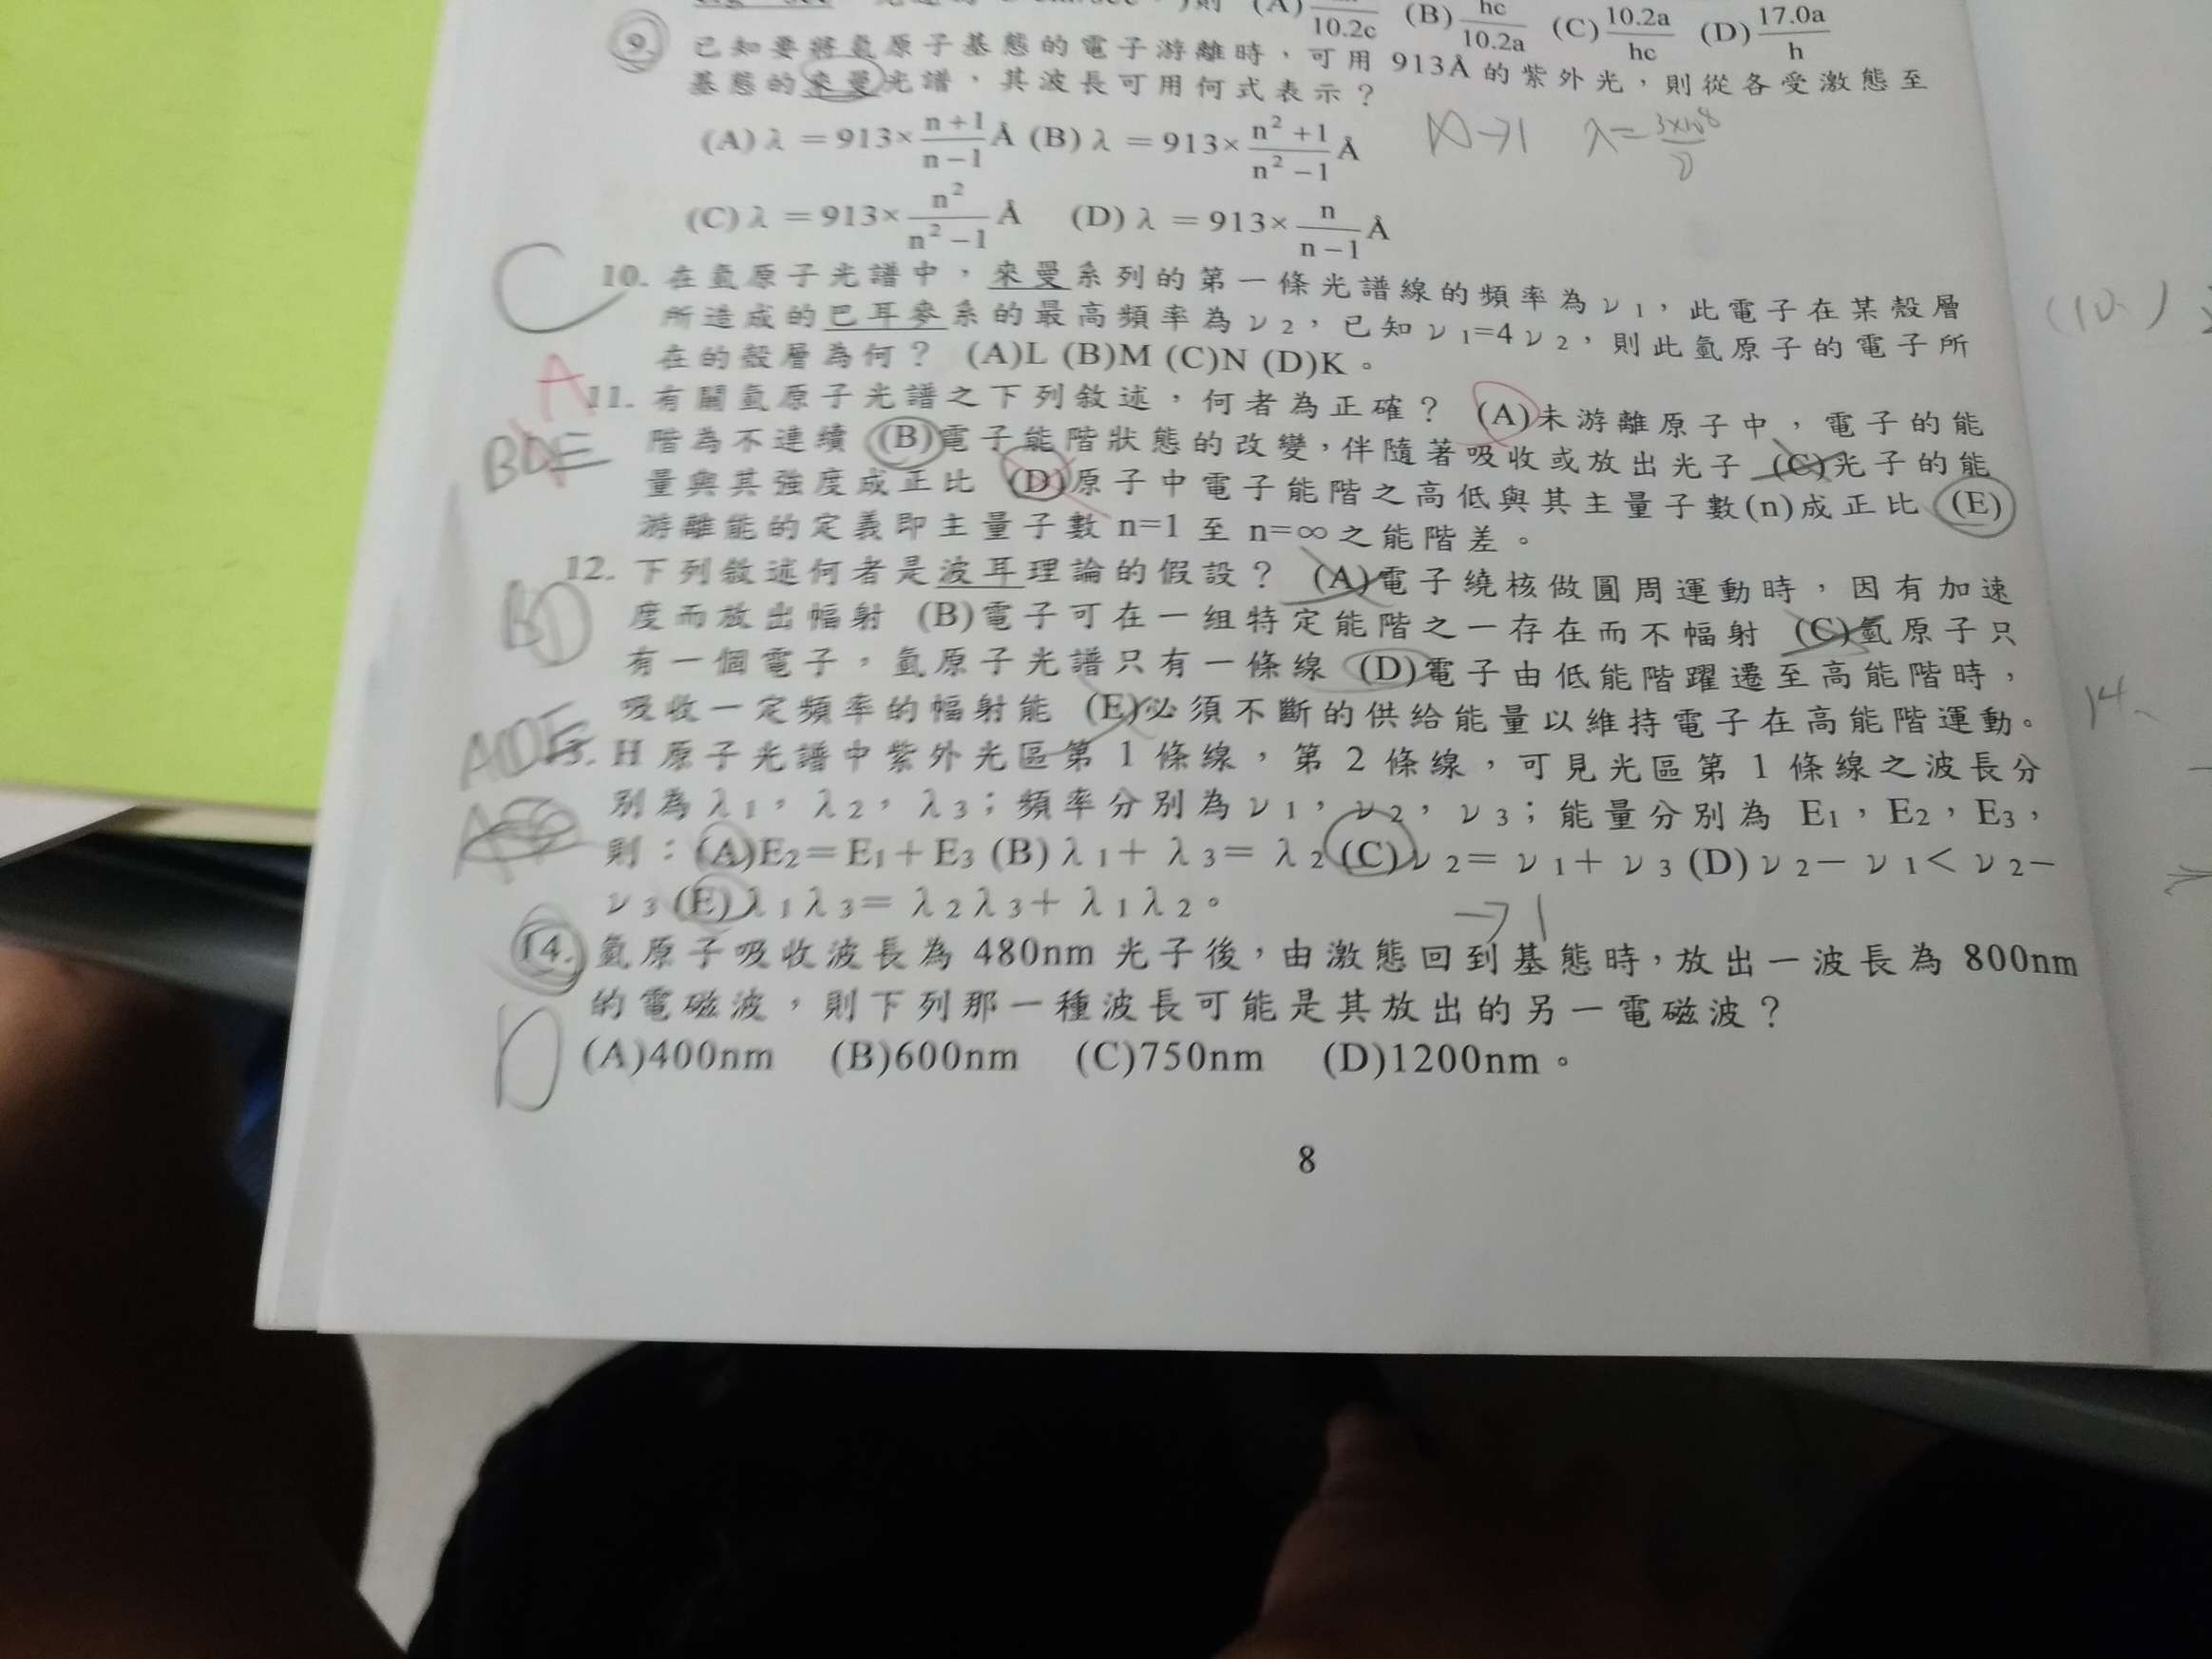 則 (A) 10.2c (B) hc/10.2a (C) 10.2a/hc (D) 17.0a/h
9. 已知要將氫原子基態的電子游離時，可用 913Å 的紫外光，則從各受激態至
基態的來曼光譜，其波長可用何式表示？
(A) λ = 913× n+1/n−1 Å (B) λ = 913× n²+1/n²−1 Å
N→1 λ= 3×10⁸/ν
(C) λ = 913× n²/n²−1 Å (D) λ = 913× n/n−1 Å
C
10. 在氫原子光譜中，來曼系列的第一條光譜線的頻率為ν1，此電子在某殼層
所造成的巴耳麥系的最高頻率為ν2，已知ν1=4ν2，則此氫原子的電子所
在的殼層為何？ (A)L (B)M (C)N (D)K。
(10.)
A
BDE
11. 有關氫原子光譜之下列敘述，何者為正確？ (A)未游離原子中，電子的能
階為不連續 (B)電子能階狀態的改變，伴隨著吸收或放出光子 (C)光子的能
量與其強度成正比 (D)原子中電子能階之高低與其主量子數(n)成正比 (E)
游離能的定義即主量子數 n=1 至 n=∞之能階差。
BD
12. 下列敘述何者是波耳理論的假設？ (A)電子繞核做圓周運動時，因有加速
度而放出幅射 (B)電子可在一組特定能階之一存在而不幅射 (C)氫原子只
有一個電子，氫原子光譜只有一條線 (D)電子由低能階躍遷至高能階時，
吸收一定頻率的幅射能 (E)必須不斷的供給能量以維持電子在高能階運動。
14.
3. H 原子光譜中紫外光區第 1 條線，第 2 條線，可見光區第 1 條線之波長分
別為λ1，λ2，λ3；頻率分別為ν1，ν2，ν3；能量分別為 E1，E2，E3，
則：(A)E2=E1+E3 (B)λ1+λ3=λ2 (C)ν2=ν1+ν3 (D)ν2−ν1<ν2−
ν3 (E)λ1λ3=λ2λ3+λ1λ2。
→1
14. 氫原子吸收波長為 480nm 光子後，由激態回到基態時，放出一波長為 800nm
的電磁波，則下列那一種波長可能是其放出的另一電磁波？
D
(A)400nm (B)600nm (C)750nm (D)1200nm。
8